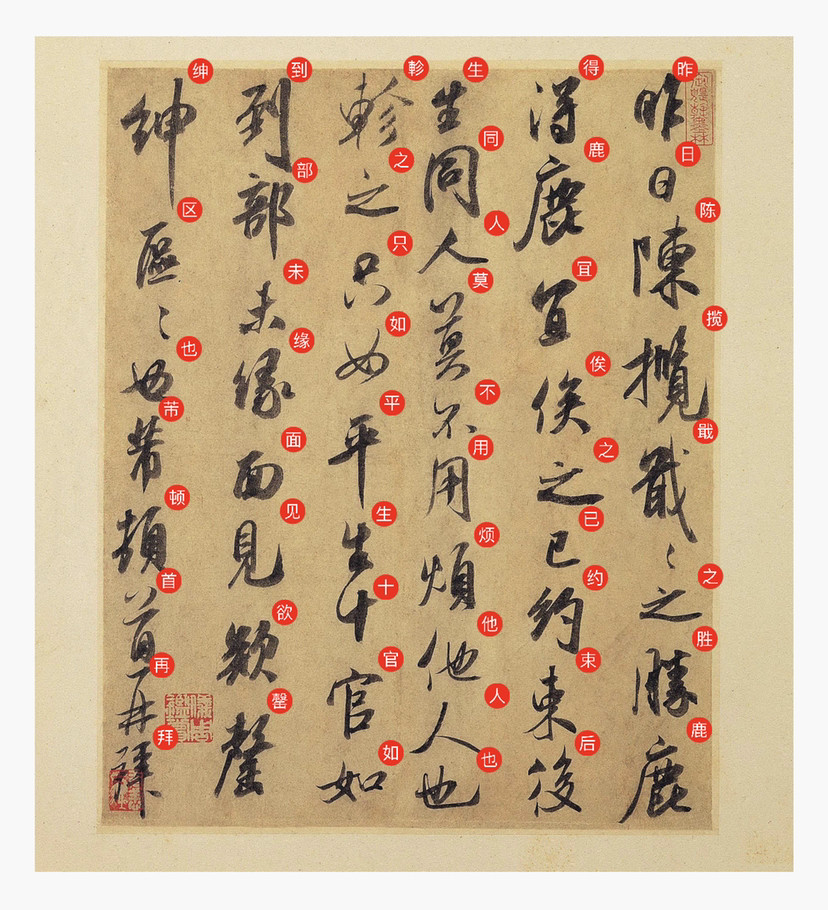 昨日陳攬戢〻之勝鹿
昨日陈揽戢之胜鹿
得鹿宜俟之已約束後
得鹿冝俟之已约束后
生同人莫不用煩他人也
生同人莫不用烦他人也
軫之只如平生十官如
軫之只如平生十官如
到部未緣面見欲罄
到部未缘面见欲罄
紳區〻也芾頓首再拜
绅区也芾顿首再拜